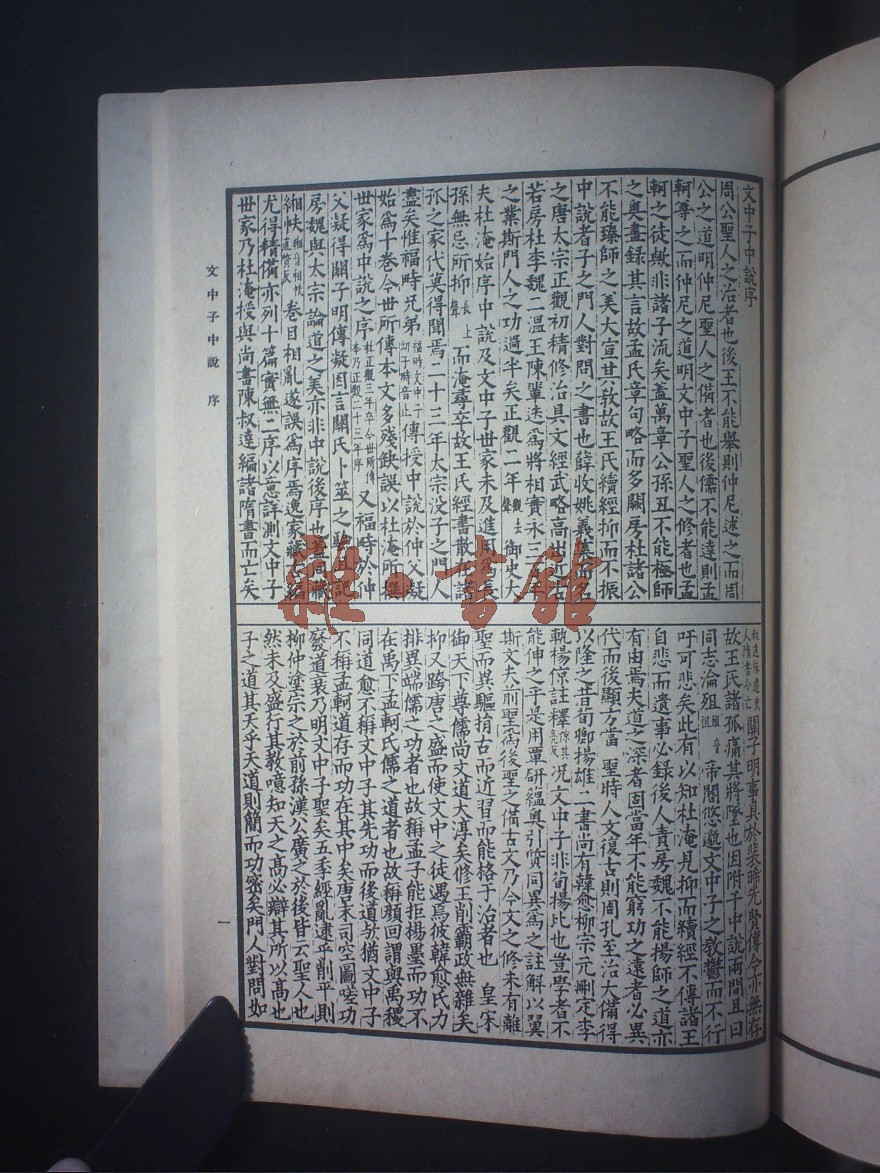 文中子中說序
周公聖人之治者也後王不能舉則仲尼述之而周
公之道明仲尼聖人之備者也後儒不能達則孟
軻尊之而仲尼之道明文中子聖人之修者也孟
軻之徒歟非諸子流矣蓋萬章公孫丑不能極師
之奧盡錄其言故孟氏章句略而多闕房杜諸公
不能臻師之美大宣其敎故王氏續經抑而不振
中說者子之門人對問之書也薛收姚義集而名
之唐太宗正觀初精修治具文經武略高出近古
若房杜李魏二溫王陳輩迭爲將相實永三百年
之業斯門人之功過半矣正觀二年觀去聲御史大
夫杜淹始序中說及文中子世家未及進用爲長
孫無忌所抑長上聲而淹尋卒故王氏經書散在諸
孤之家代莫得聞焉二十三年太宗沒子之門人
盡矣惟福畤兄弟福畤文中子幼子畤音止傳授中說於仲父凝
始爲十卷今世所傳本文多殘缺誤以杜淹所撰
世家爲中說之序杜正觀三年卒今世所傳本乃正觀二十三年序又福畤於仲
父凝得關子明傳凝因言關氏卜筮之驗且記
房魏與太宗論道之美亦非中說後序也蓋同藏
緗帙緗音相帙直質反卷目相亂遂誤爲序焉逸家藏古編
尤得精備亦列十篇實無二序以意詳測文中子
世家乃杜淹授與尚書陳叔達編諸隋書而亡矣
叔達依遷史人隋書今亡關子明事具於裴晞先賢傳今亦無存
故王氏諸孤痛其將墜也因附于中說兩間且曰
同志淪殂殂音徂帝閽悠邈文中子之敎鬱而不行
吁可悲矣此有以知杜淹見抑而續經不傳諸王
自悲而遺事必錄後人責房魏不能揚師之道亦
有由焉夫道之深者固當年不能窮功之遠者必異
代而後顯方當 聖時人文復古則周孔至治大備得
以隆之昔荀卿揚雄二書尚有韓愈柳宗元刪定李
軌楊倞註釋倞其亮反況文中子非荀楊比也豈學者不
能伸之乎是用覃研蘊奧引質同異爲之註解以翼
斯文夫前聖爲後聖之備古文乃今文之修未有離
聖而異驅捐古而近習而能格于治者也 皇宋
御天下尊儒尚文道大淳矣修王削霸政無雜矣
抑又跨唐之盛而使文中之徒遇焉彼韓愈氏力
排異端儒之功者也故稱孟子能拒揚墨而功不
在禹下孟軻氏儒之道者也故稱顏回謂與禹稷
同道愈不稱文中子其先功而後道歟猶文中子
不稱孟軻道存而功在其中矣唐末司空圖嗟功
廢道衰乃明文中子聖矣五季經亂逮乎削平則
柳仲塗宗之於前孫漢公廣之於後皆云聖人也
然未及盛行其敎噫知天之高必辯其所以高也
子之道其天乎天道則簡而功密矣門人對問如
文中子中說 序
一
雜·書館